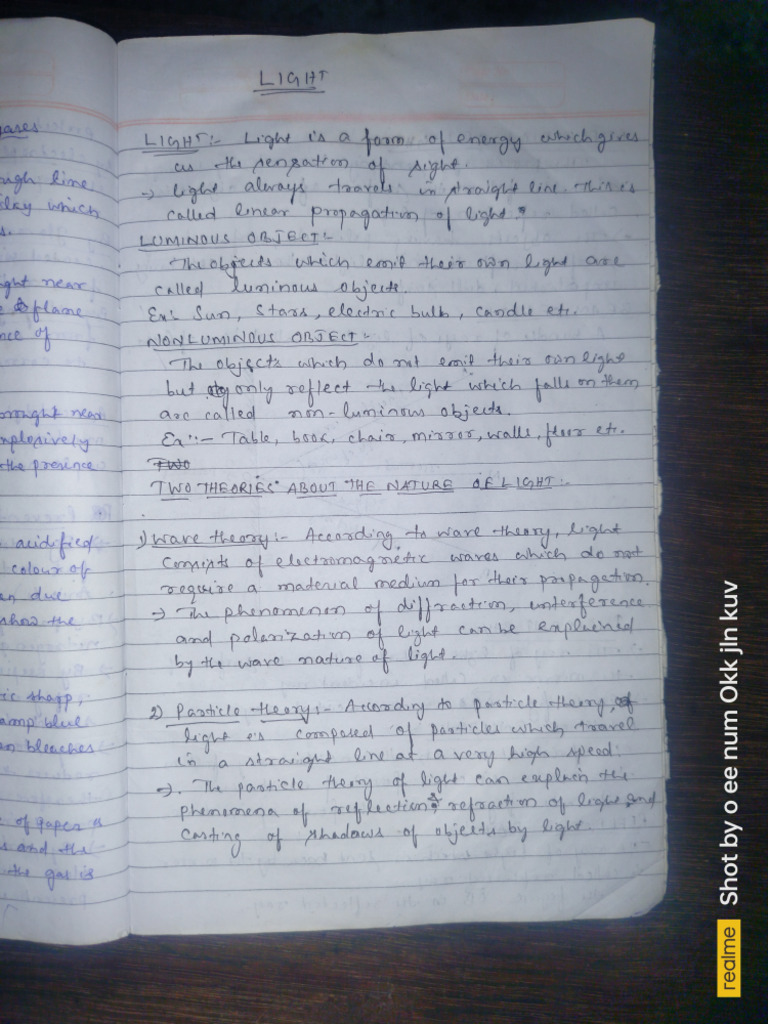 LIGHT
LIGHT:- Light is a form of energy which gives
us the sensation of sight.
→ light always travels in straight line. This is
called linear propagation of light.
LUMINOUS OBJECT:-
The objects which emit their own light are
called luminous objects.
Ex: Sun, Stars, electric bulb, candle etc.
NONLUMINOUS OBJECT:-
The objects which do not emit their own light
but only reflect the light which falls on them
are called non-luminous objects.
Ex:- Table, book, chair, mirror, walls, floor etc.
TWO
TWO THEORIES ABOUT THE NATURE OF LIGHT:-
1) Wave theory:- According to wave theory, light
consists of electromagnetic waves which do not
require a material medium for their propagation.
→ The phenomenon of diffraction, interference
and polarization of light can be explained
by the wave nature of light.
2) Particle theory:- According to particle theory, of
light is composed of particles which travel
in a straight line at a very high speed.
→. The particle theory of light can explain the
phenomena of reflection & refraction of light and
casting of shadows of objects by light.
gases
ugh line
day which
s.
ght near
plane
nce of
brought near
mplosively
the presence
acidified
colour of
en due
show the
ric sharp,
amp blue
en bleaches
e of gases is
s and the
the gas is
realme Shot by o ee num Okk jln kuv